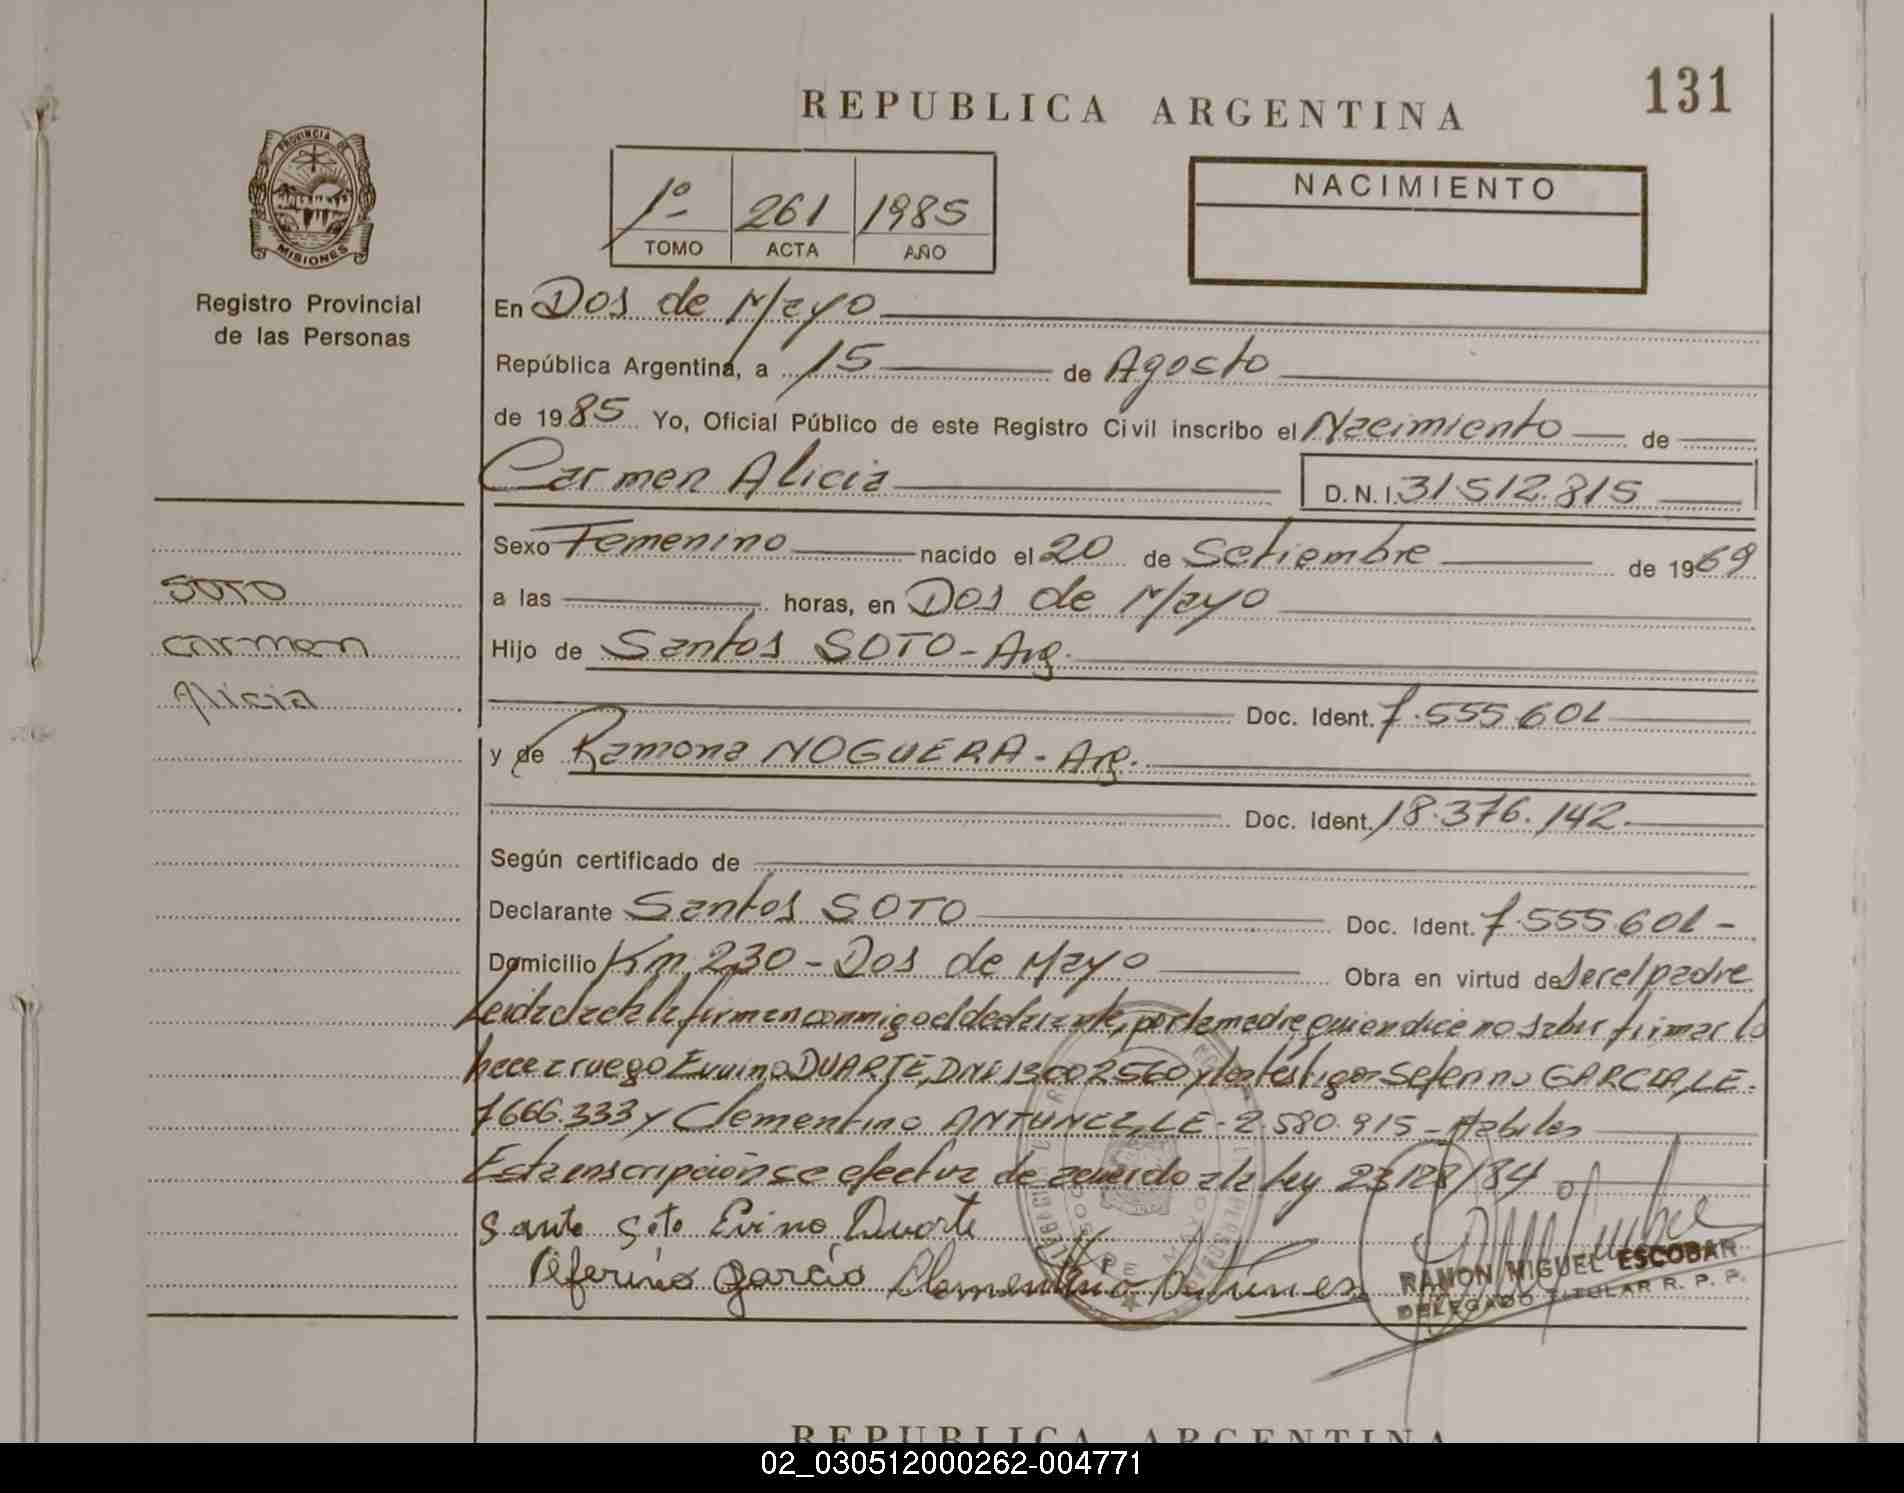 131
REPUBLICA ARGENTINA
PROVINCIA DE
MISIONES
Registro Provincial
de las Personas
1º 261 1985
TOMO ACTA AÑO
NACIMIENTO
En Dos de Mayo
República Argentina, a 15 de Agosto
de 1985 Yo, Oficial Público de este Registro Civil inscribo el Nacimiento de
Carmen Alicia D.N.I. 31.512.815
Sexo Femenino nacido el 20 de Setiembre de 1969
a las horas, en Dos de Mayo
Hijo de Santos SOTO - Arg.
Doc. Ident. 7.555.601
y de Ramona NOGUERA - Arg.
Doc. Ident. 18.376.142.
Según certificado de
Declarante Santos SOTO Doc. Ident. 7.555.601 -
Domicilio Km 230 - Dos de Mayo Obra en virtud de ser el padre
Leida el acta la firman conmigo el declarante, por la madre quien dice no saber firmar lo
hace a ruego DUARTE, DNI 13002560 y los testigos Seferino GARCIA, LE.
7666.333 y Clementino ANTUNEZ, LE - 2.580.915 - Habiles
Esta inscripción se efectua de acuerdo a la ley 23128/84
Santo Soto Evino Duarte
Seferino Garcia Clementino Antunes
RAMON MIGUEL ESCOBAR
DELEGADO TITULAR R. P. P.
SOTO
Carmen
Alicia
REPUBLICA ARGENTINA
02_030512000262-004771